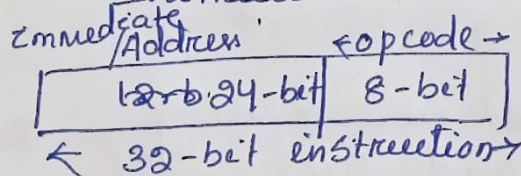 Immediate
/Address
<opcode→
24-bit
8-bit
← 32-bit instruction→